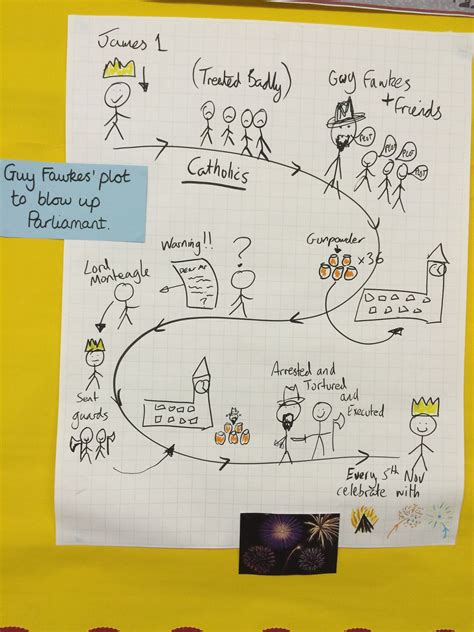 James 1
(Treated Badly)
Guy Fawkes
+ Friends
PLOT
PLOT
PLOT
PLOT
Catholics
Guy Fawkes' plot
to blow up
Parliamant.
Warning!!
?
Gunpowder
x36
Lord
Monteagle
?
Sent
guards
Arrested and
Tortured
and
Executed
Every 5th Nov
celebrate with